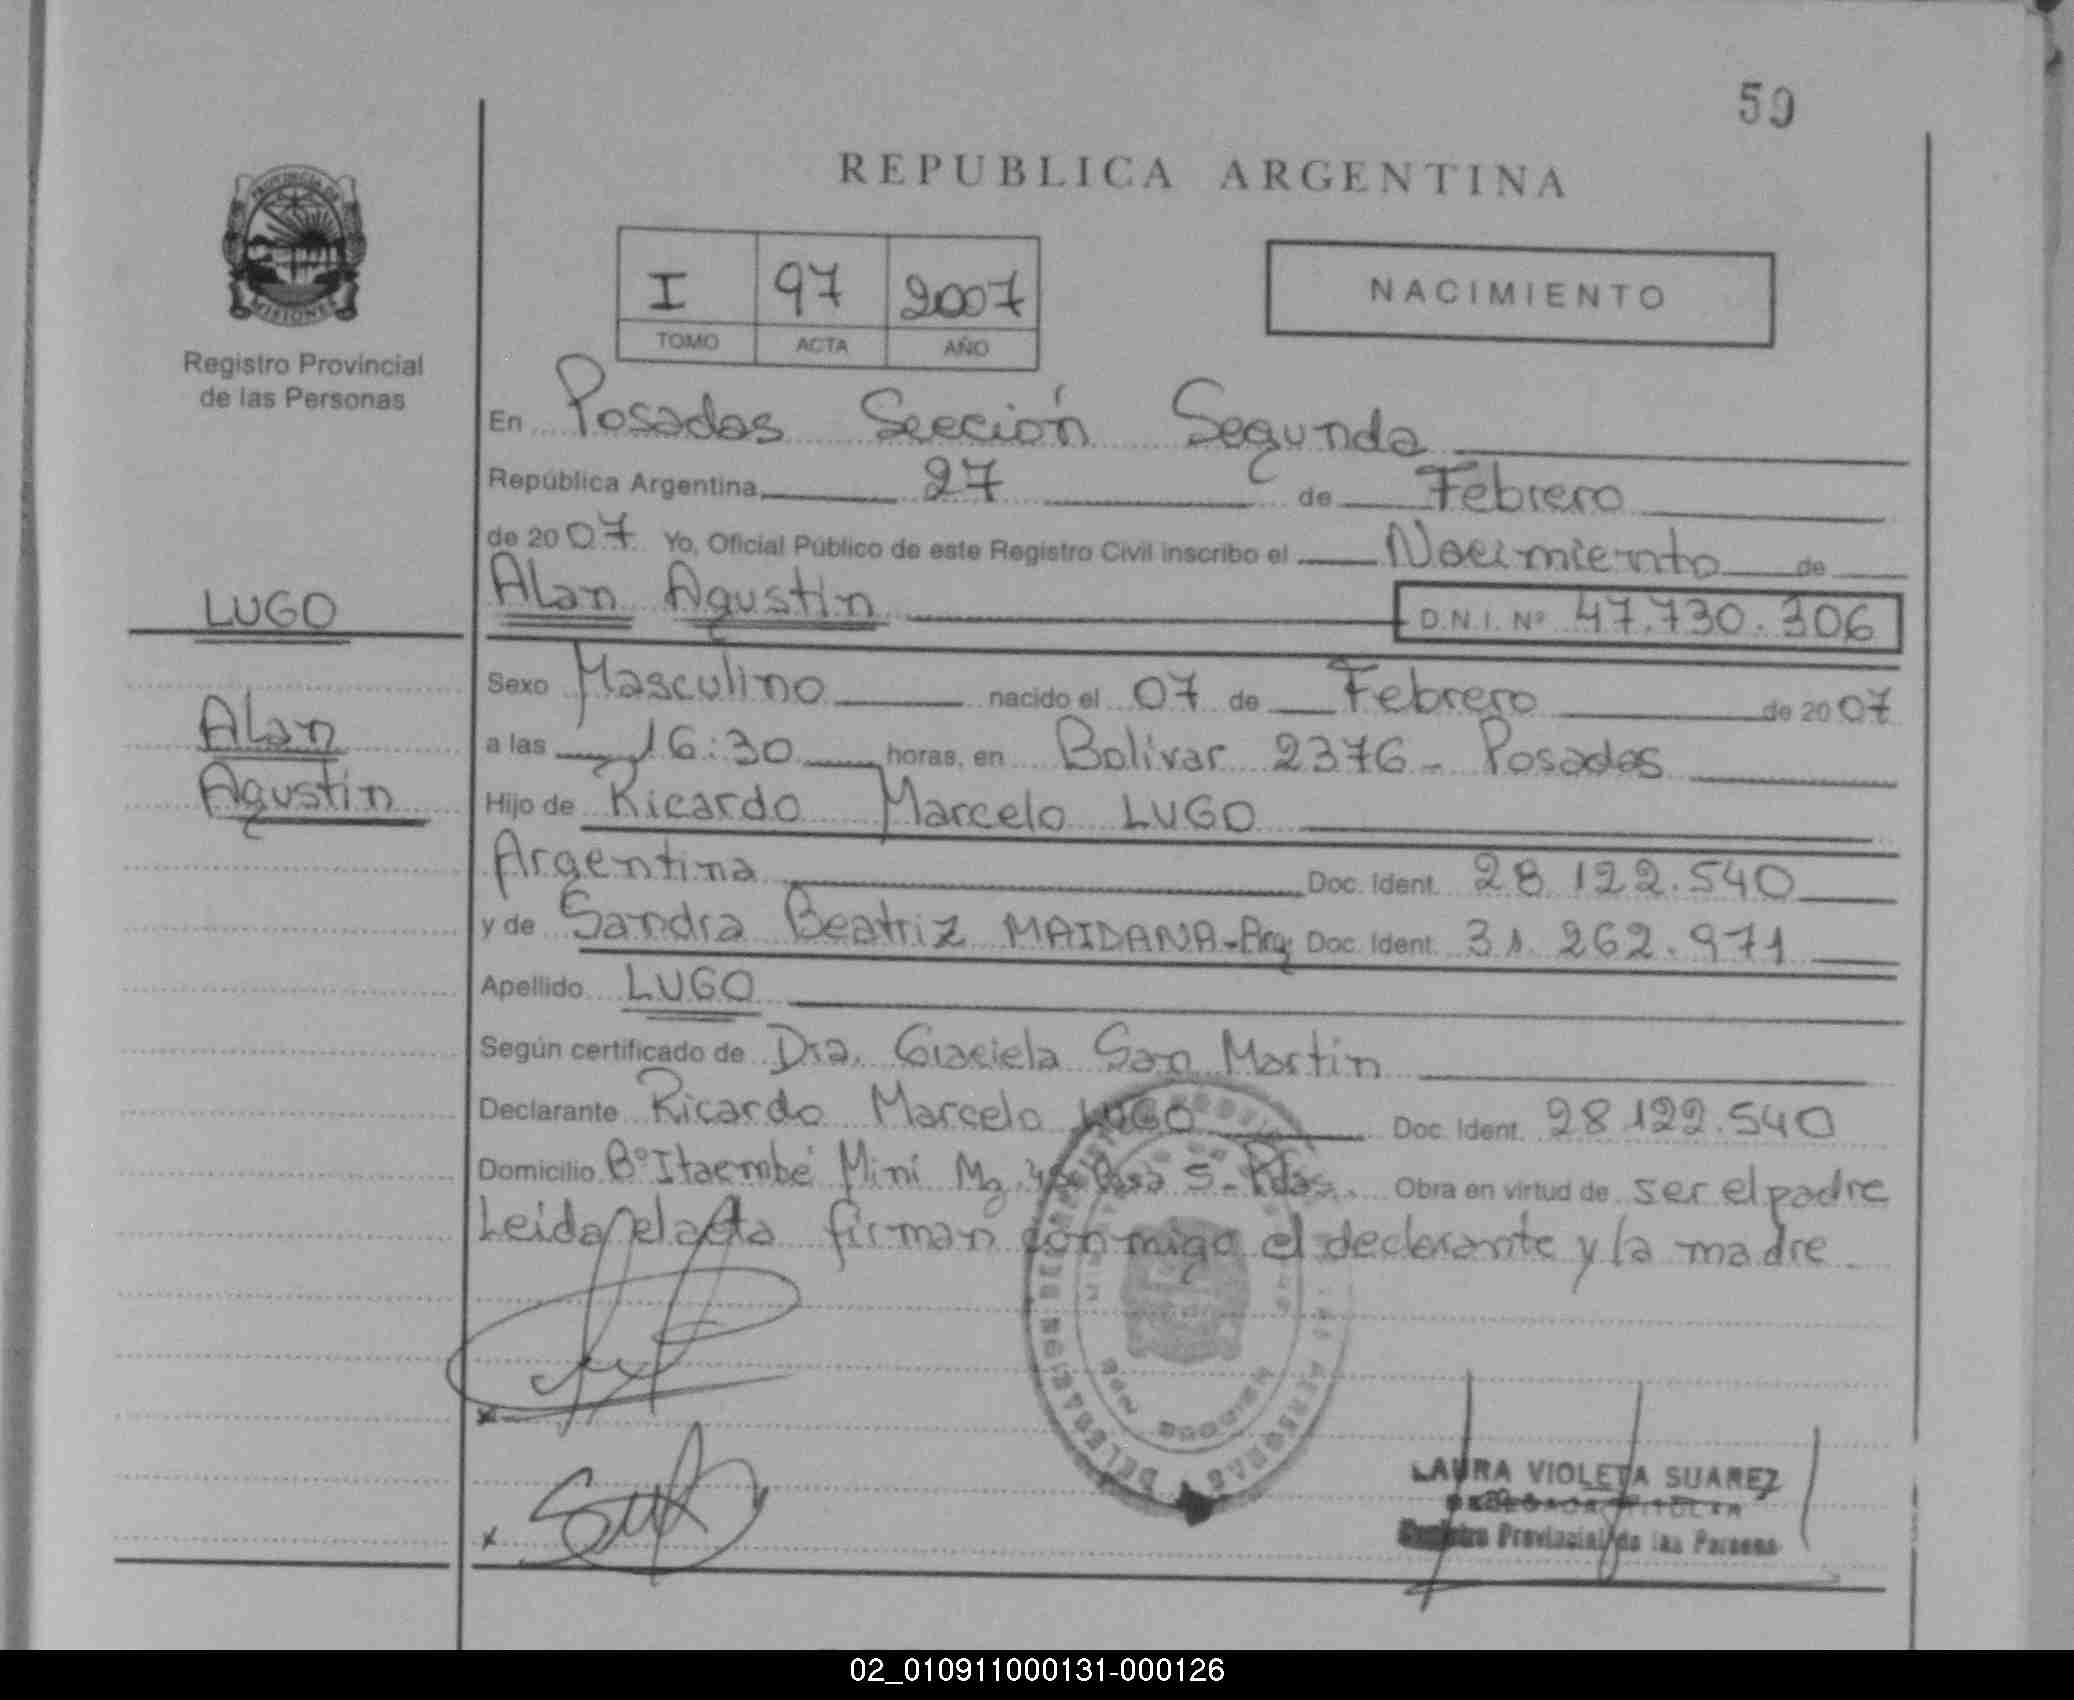 59
REPUBLICA ARGENTINA
PROVINCIA DE
MISIONES
Registro Provincial
de las Personas
I 97 2007
TOMO ACTA AÑO
NACIMIENTO
En Posadas Sección Segunda
República Argentina, 27 de Febrero
de 2007 Yo, Oficial Público de este Registro Civil inscribo el Nacimiento de
LUGO
Alan Agustín D.N.I. Nº 47.730.306
Sexo Masculino nacido el 07 de Febrero de 2007
Alan
a las 16:30 horas, en Bolivar 2376 - Posadas
Agustín
Hijo de Ricardo Marcelo LUGO
Argentina Doc. Ident. 28.122.540
y de Sandra Beatriz MAIDANA - Arg Doc. Ident. 31.262.971
Apellido LUGO
Según certificado de Dra. Graciela San Martin
Declarante Ricardo Marcelo LUGO Doc. Ident. 28.122.540
Domicilio Bº Itaembé Miní Mz Casa 5 - Pdas. Obra en virtud de ser el padre
Leida el acta firman conmigo el declarante y la madre
LAURA VIOLETA SUAREZ
Registro Provincial de las Personas
02_010911000131-000126